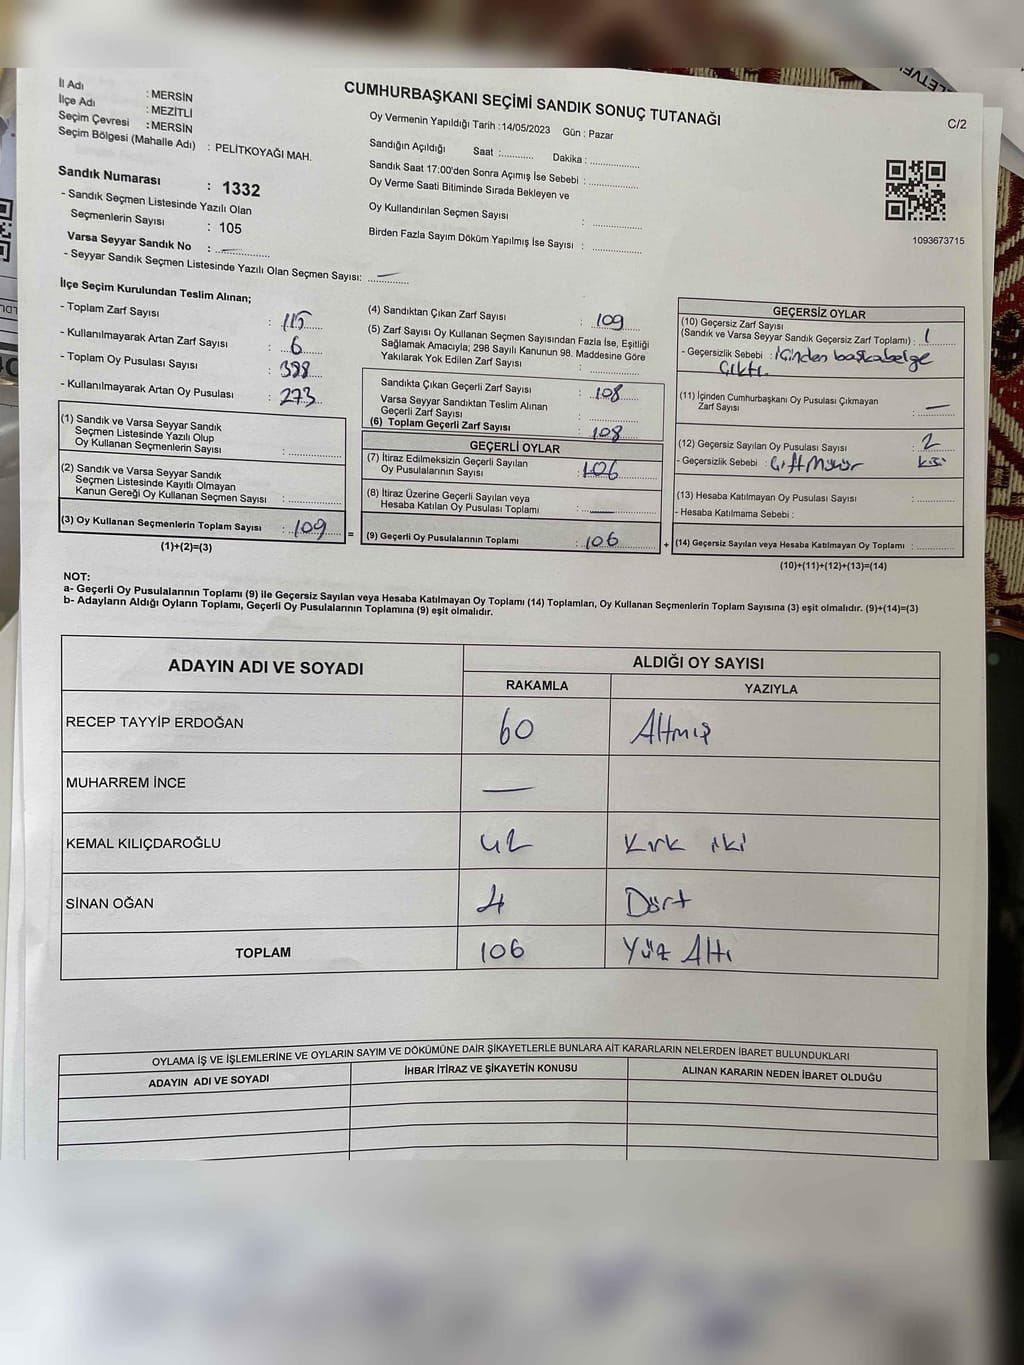 CUMHURBAŞKANI SEÇİMİ SANDIK SONUÇ TUTANAĞI
C/2
İl Adı : MERSİN
İlçe Adı : MEZİTLİ
Seçim Çevresi : MERSİN
Seçim Bölgesi (Mahalle Adı) : PELİTKOYAĞI MAH.
Sandık Numarası : 1332
- Sandık Seçmen Listesinde Yazılı Olan
Seçmenlerin Sayısı : 105
Varsa Seyyar Sandık No : —
- Seyyar Sandık Seçmen Listesinde Yazılı Olan Seçmen Sayısı: —
Oy Vermenin Yapıldığı Tarih : 14/05/2023 Gün : Pazar
Sandığın Açıldığı Saat :........... Dakika : ................
Sandık Saat 17:00'den Sonra Açımış İse Sebebi : ................
Oy Verme Saati Bitiminde Sırada Bekleyen ve
Oy Kullandırılan Seçmen Sayısı : ................
Birden Fazla Sayım Döküm Yapılmış İse Sayısı : ................
1093673715
İlçe Seçim Kurulundan Teslim Alınan;
- Toplam Zarf Sayısı : 115
- Kullanılmayarak Artan Zarf Sayısı : 6
- Toplam Oy Pusulası Sayısı : 398
- Kullanılmayarak Artan Oy Pusulası : 273
(1) Sandık ve Varsa Seyyar Sandık
Seçmen Listesinde Yazılı Olup
Oy Kullanan Seçmenlerin Sayısı : ................
(2) Sandık ve Varsa Seyyar Sandık
Seçmen Listesinde Kayıtlı Olmayan
Kanun Gereği Oy Kullanan Seçmen Sayısı : ................
(3) Oy Kullanan Seçmenlerin Toplam Sayısı : 109 =
(1)+(2)=(3)
(4) Sandıktan Çıkan Zarf Sayısı : 109
(5) Zarf Sayısı Oy Kullanan Seçmen Sayısından Fazla İse, Eşitliği
Sağlamak Amacıyla; 298 Sayılı Kanunun 98. Maddesine Göre
Yakılarak Yok Edilen Zarf Sayısı : ................
Sandıkta Çıkan Geçerli Zarf Sayısı : 108
Varsa Seyyar Sandıktan Teslim Alınan
Geçerli Zarf Sayısı : ................
(6) Toplam Geçerli Zarf Sayısı : 108
GEÇERLİ OYLAR
(7) İtiraz Edilmeksizin Geçerli Sayılan
Oy Pusulalarının Sayısı : 106
(8) İtiraz Üzerine Geçerli Sayılan veya
Hesaba Katılan Oy Pusulası Toplamı : —
(9) Geçerli Oy Pusulalarının Toplamı : 106 +
GEÇERSİZ OYLAR
(10) Geçersiz Zarf Sayısı
(Sandık ve Varsa Seyyar Sandık Geçersiz Zarf Toplamı) : 1
- Geçersizlik Sebebi : içinden başka belge
Çıktı.
(11) İçinden Cumhurbaşkanı Oy Pusulası Çıkmayan
Zarf Sayısı : —
(12) Geçersiz Sayılan Oy Pusulası Sayısı : 2
- Geçersizlik Sebebi : Çift Mühür
(13) Hesaba Katılmayan Oy Pusulası Sayısı : ................
- Hesaba Katılmama Sebebi :
(14) Geçersiz Sayılan veya Hesaba Katılmayan Oy Toplamı : ................
(10)+(11)+(12)+(13)=(14)
NOT:
a- Geçerli Oy Pusulalarının Toplamı (9) ile Geçersiz Sayılan veya Hesaba Katılmayan Oy Toplamı (14) Toplamları, Oy Kullanan Seçmenlerin Toplam Sayısına (3) eşit olmalıdır. (9)+(14)=(3)
b- Adayların Aldığı Oyların Toplamı, Geçerli Oy Pusulalarının Toplamına (9) eşit olmalıdır.
ADAYIN ADI VE SOYADI
ALDIĞI OY SAYISI
RAKAMLA YAZIYLA
RECEP TAYYİP ERDOĞAN 60 Altmış
MUHARREM İNCE —
KEMAL KILIÇDAROĞLU 42 Kırk iki
SİNAN OĞAN 4 Dört
TOPLAM 106 Yüz Altı
OYLAMA İŞ VE İŞLEMLERİNE VE OYLARIN SAYIM VE DÖKÜMÜNE DAİR ŞİKAYETLERLE BUNLARA AİT KARARLARIN NELERDEN İBARET BULUNDUKLARI
ADAYIN ADI VE SOYADI İHBAR İTİRAZ VE ŞİKAYETİN KONUSU ALINAN KARARIN NEDEN İBARET OLDUĞU